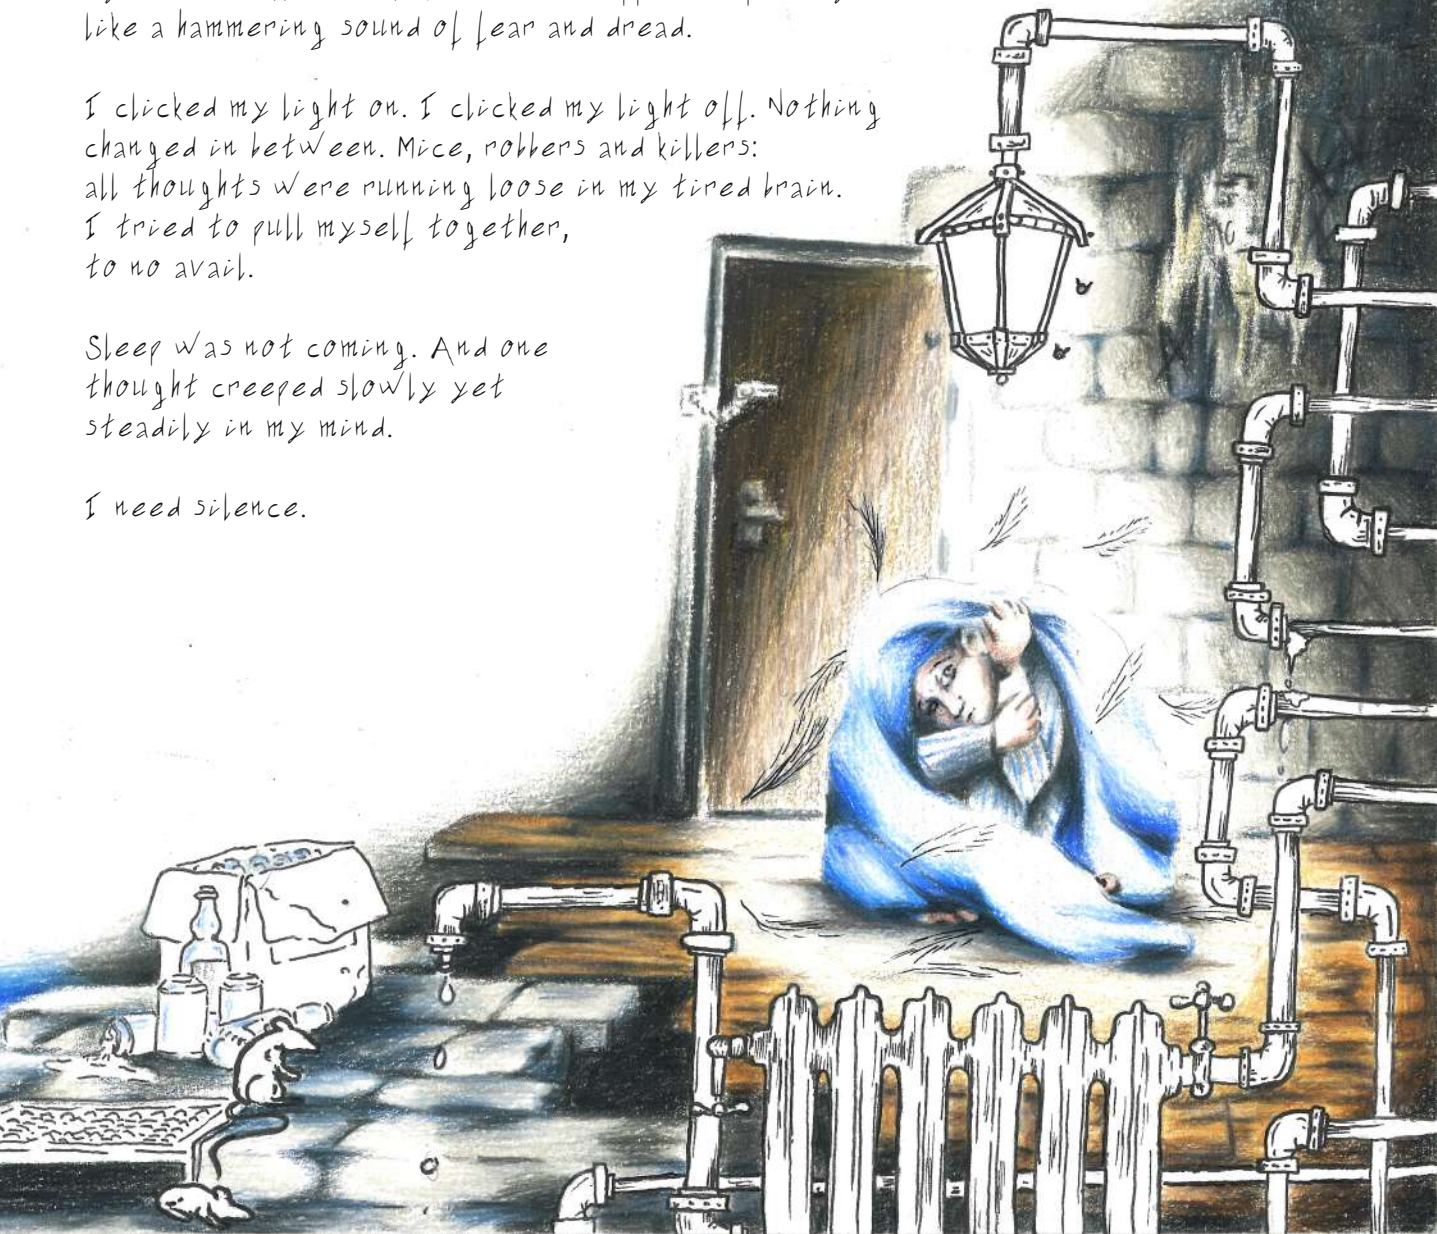 like a hammering sound of fear and dread.
I clicked my light on. I clicked my light off. Nothing
changed in between. Mice, robbers and killers:
all thoughts were running loose in my tired brain.
I tried to pull myself together,
to no avail.
Sleep was not coming. And one
thought creeped slowly yet
steadily in my mind.
I need silence.